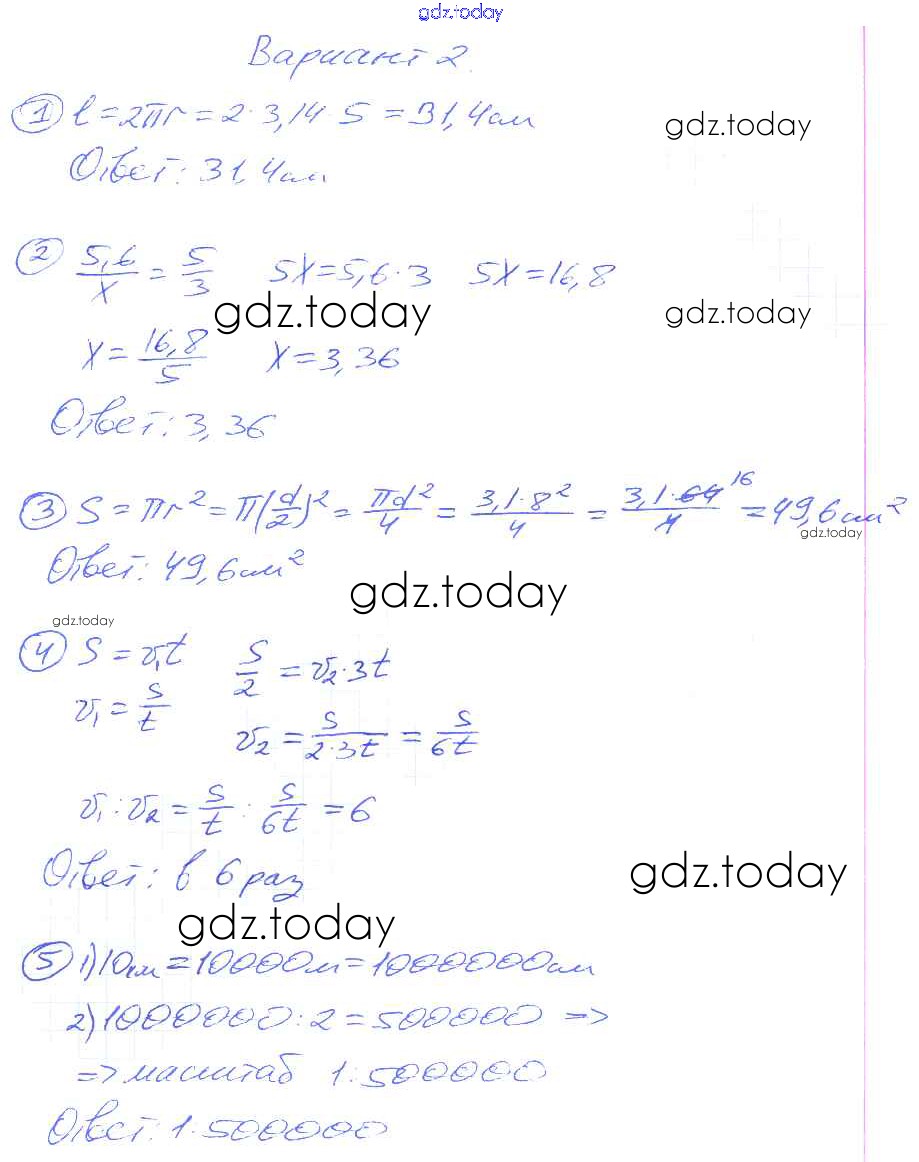 gdz.today
Вариант 2.
① l=2πr=2·3,14·5=31,4см
gdz.today
Ответ: 31,4см
② 5,6/x = 5/3   5x=5,6·3   5x=16,8
gdz.today gdz.today
x=16,8/5   x=3,36
Ответ: 3,36
③ S=πr²=π(d/2)²=πd²/4=3,1·8²/4=3,1·64/4 16=49,6см²
gdz.today
Ответ: 49,6см²
gdz.today
gdz.today
④ S=v₁t   S/2=v₂·3t
v₁=S/t
v₂=S/2·3t=S/6t
v₁:v₂=S/t:S/6t=6
Ответ: в 6 раз
gdz.today
gdz.today
⑤ 1)10км=10000м=1000000см
2)1000000:2=500000 =>
=> масштаб 1:500000
Ответ: 1:500000